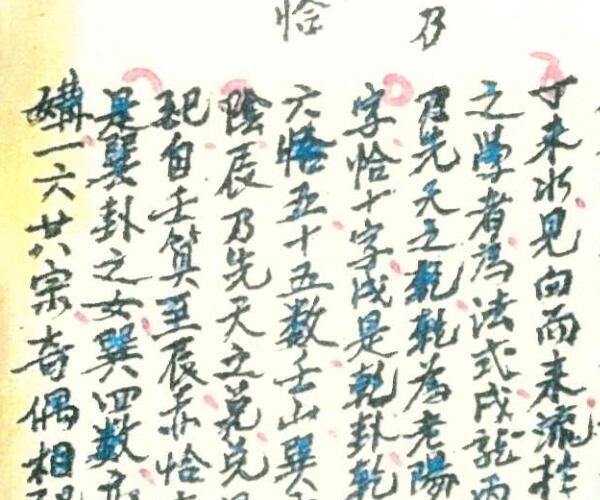 乃
恰
丁未水見向而未流
之學者為法式戌龍丙
乃先天之乾乾為老陽
字恰十字戌是乾卦乾
六恰五十五數壬山巽
陰辰乃先天之兌兌
配自壬算至辰亦恰
是巽卦之女巽四數
媾一六共宗奇偶相